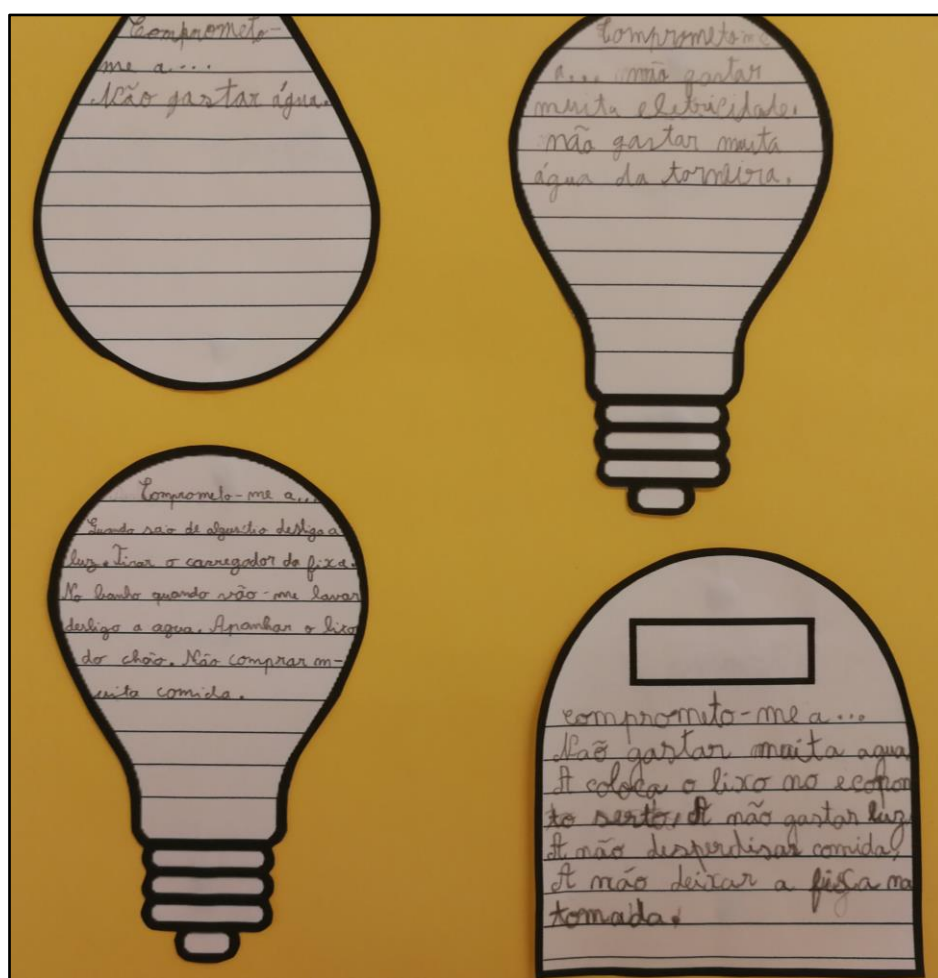 Comprometo-
me a....
Não gastar água.
Comprometo-me
a... não gastar
muita eletricidade.
não gastar muita
água da torneira.
Comprometo-me a...
Quando saio de algusitio desligo a
luz. Tirar o carregador da fixa.
No banho quando vão-me lavar
desligo a agua. Apanhar o lixo
do chão. Não comprar m-
uita comida.
comprometo-me a...
Naõ gastar muita agua
A coloca o lixo no ecopon
to serto. A não gastar luz
A não desperdisar comida.
A não deixar a fixa na
tomada.